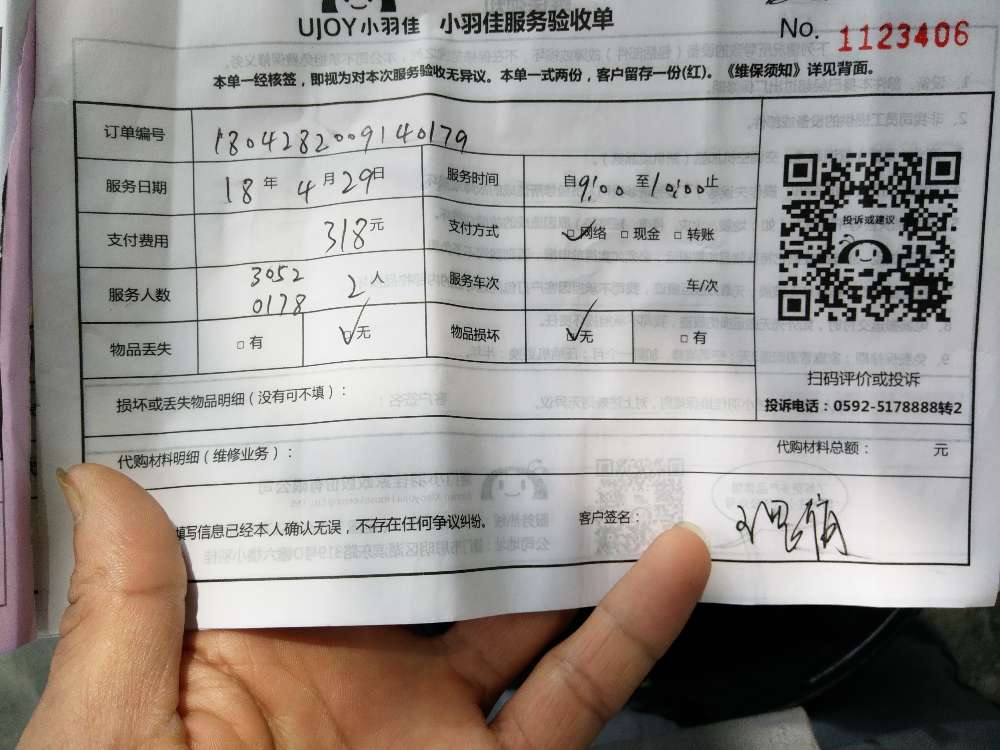 UJOY小羽佳 小羽佳服务验收单
No. 1123406
本单一经核签，即视为对本次服务验收无异议。本单一式两份，客户留存一份(红)。《维保须知》详见背面。
订单编号 1804282009140179
服务日期 18年 4月29日 服务时间 自9:00至10:00止
支付费用 318元 支付方式 网络 现金 转账
服务人数 3052 0178 2人 服务车次 车/次
物品丢失 有 无 物品损坏 无 有
投诉或建议
扫码评价或投诉
投诉电话：0592-5178888转2
损坏或丢失物品明细（没有可不填）：
代购材料明细（维修业务）： 代购材料总额： 元
填写信息已经本人确认无误，不存在任何争议纠纷。 客户签名：